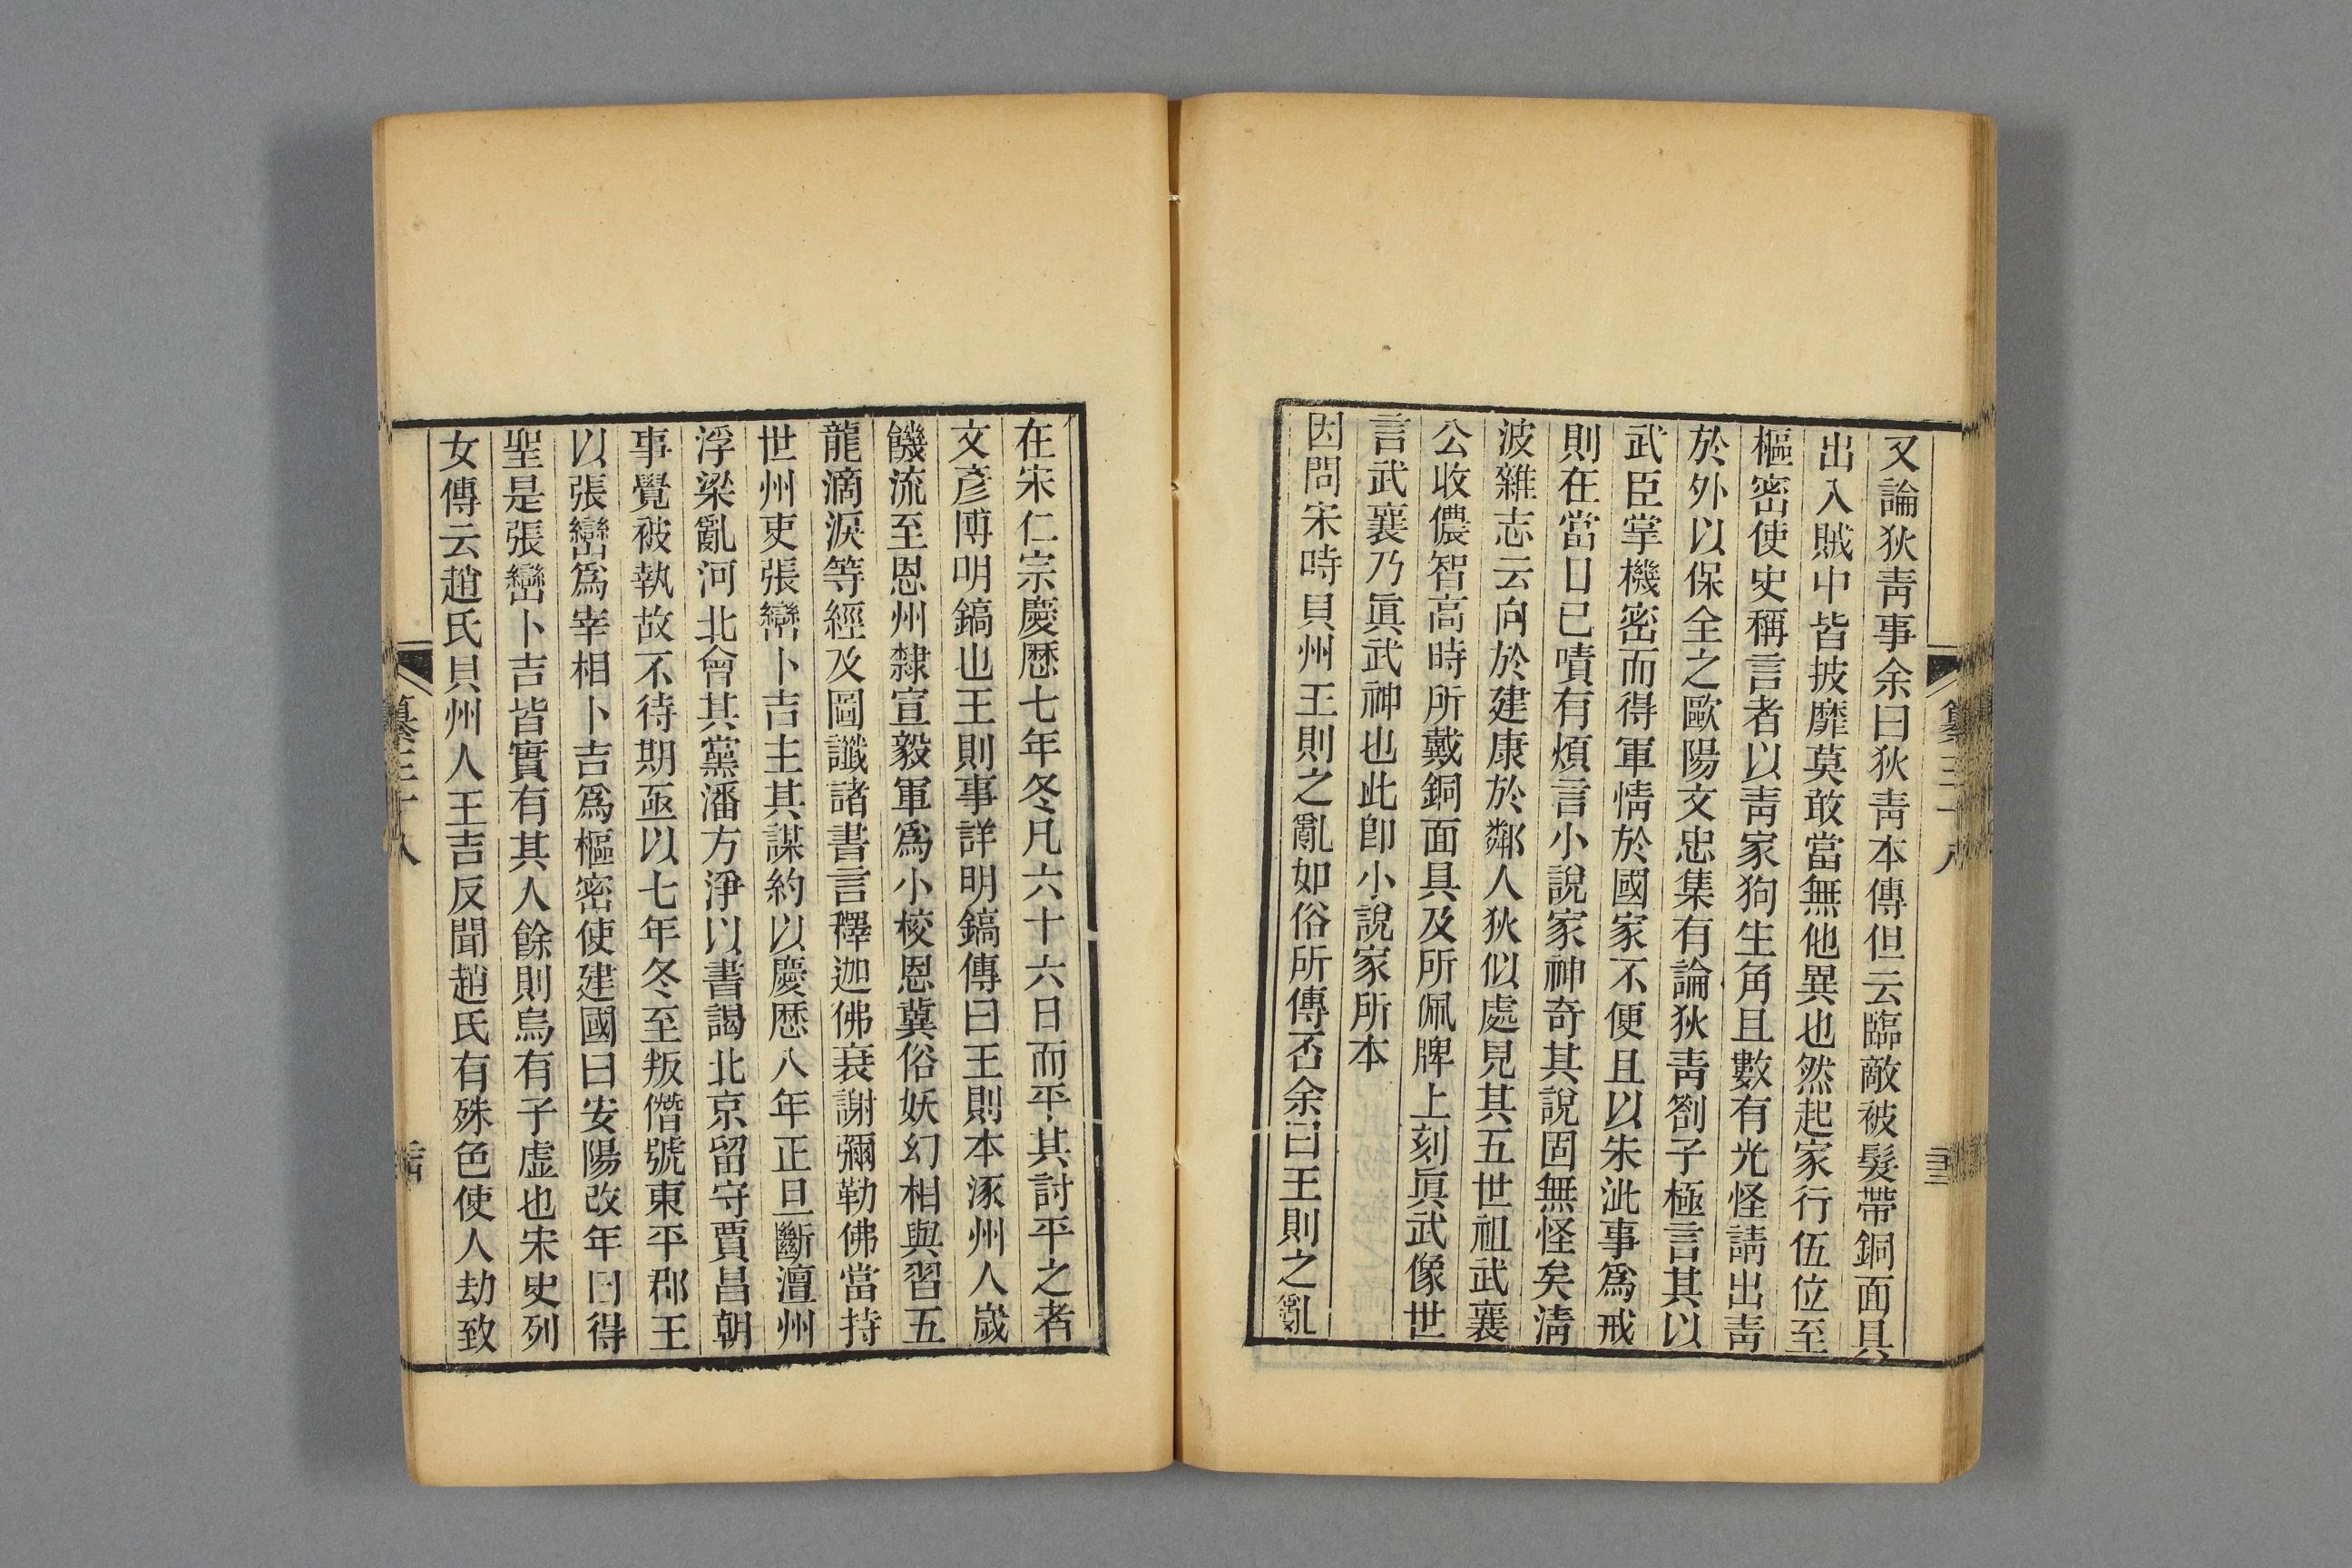 又論狄靑事余曰狄靑本傳但云臨敵被髮帶銅面具
出入賊中皆披靡莫敢當無他異也然起家行伍位至
樞密使史稱言者以靑家狗生角且數有光怪請出靑
於外以保全之歐陽文忠集有論狄靑劄子極言其以
武臣掌機密而得軍情於國家不便且以朱泚事爲戒
則在當日已嘖有煩言小說家神奇其說固無怪矣淸
波雜志云向於建康於鄰人狄似處見其五世祖武襄
公收儂智高時所戴銅面具及所佩牌上刻眞武像世
言武襄乃眞武神也此卽小說家所本
因問宋時貝州王則之亂如俗所傳否余曰王則之亂
在宋仁宗慶歷七年冬凡六十六日而平其討平之者
文彥博明鎬也王則事詳明鎬傳曰王則本涿州人歲
饑流至恩州隸宣毅軍爲小校恩冀俗妖幻相與習五
龍滴淚等經及圖讖諸書言釋迦佛衰謝彌勒佛當持
世州吏張巒卜吉主其謀約以慶歷八年正旦斷澶州
浮梁亂河北會其黨潘方淨以書謁北京留守賈昌朝
事覺被執故不待期亟以七年冬至叛僭號東平郡王
以張巒爲宰相卜吉爲樞密使建國曰安陽改年曰得
聖是張巒卜吉皆實有其人餘則烏有子虛也宋史列
女傳云趙氏貝州人王吉反聞趙氏有殊色使人劫致
纂三十八